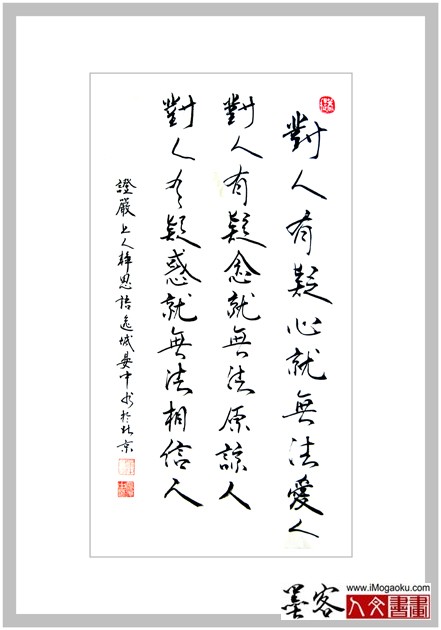 對人有疑心就無法愛人
對人有疑念就無法原諒人
對人有疑惑就無法相信人
證嚴上人靜思語城晏中书於北京
墨客
www.iMogaoku.com
人文書畫